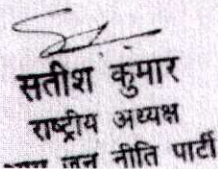 सतीश कुमार
राष्ट्रीय अध्यक्ष
जन नीति पार्टी